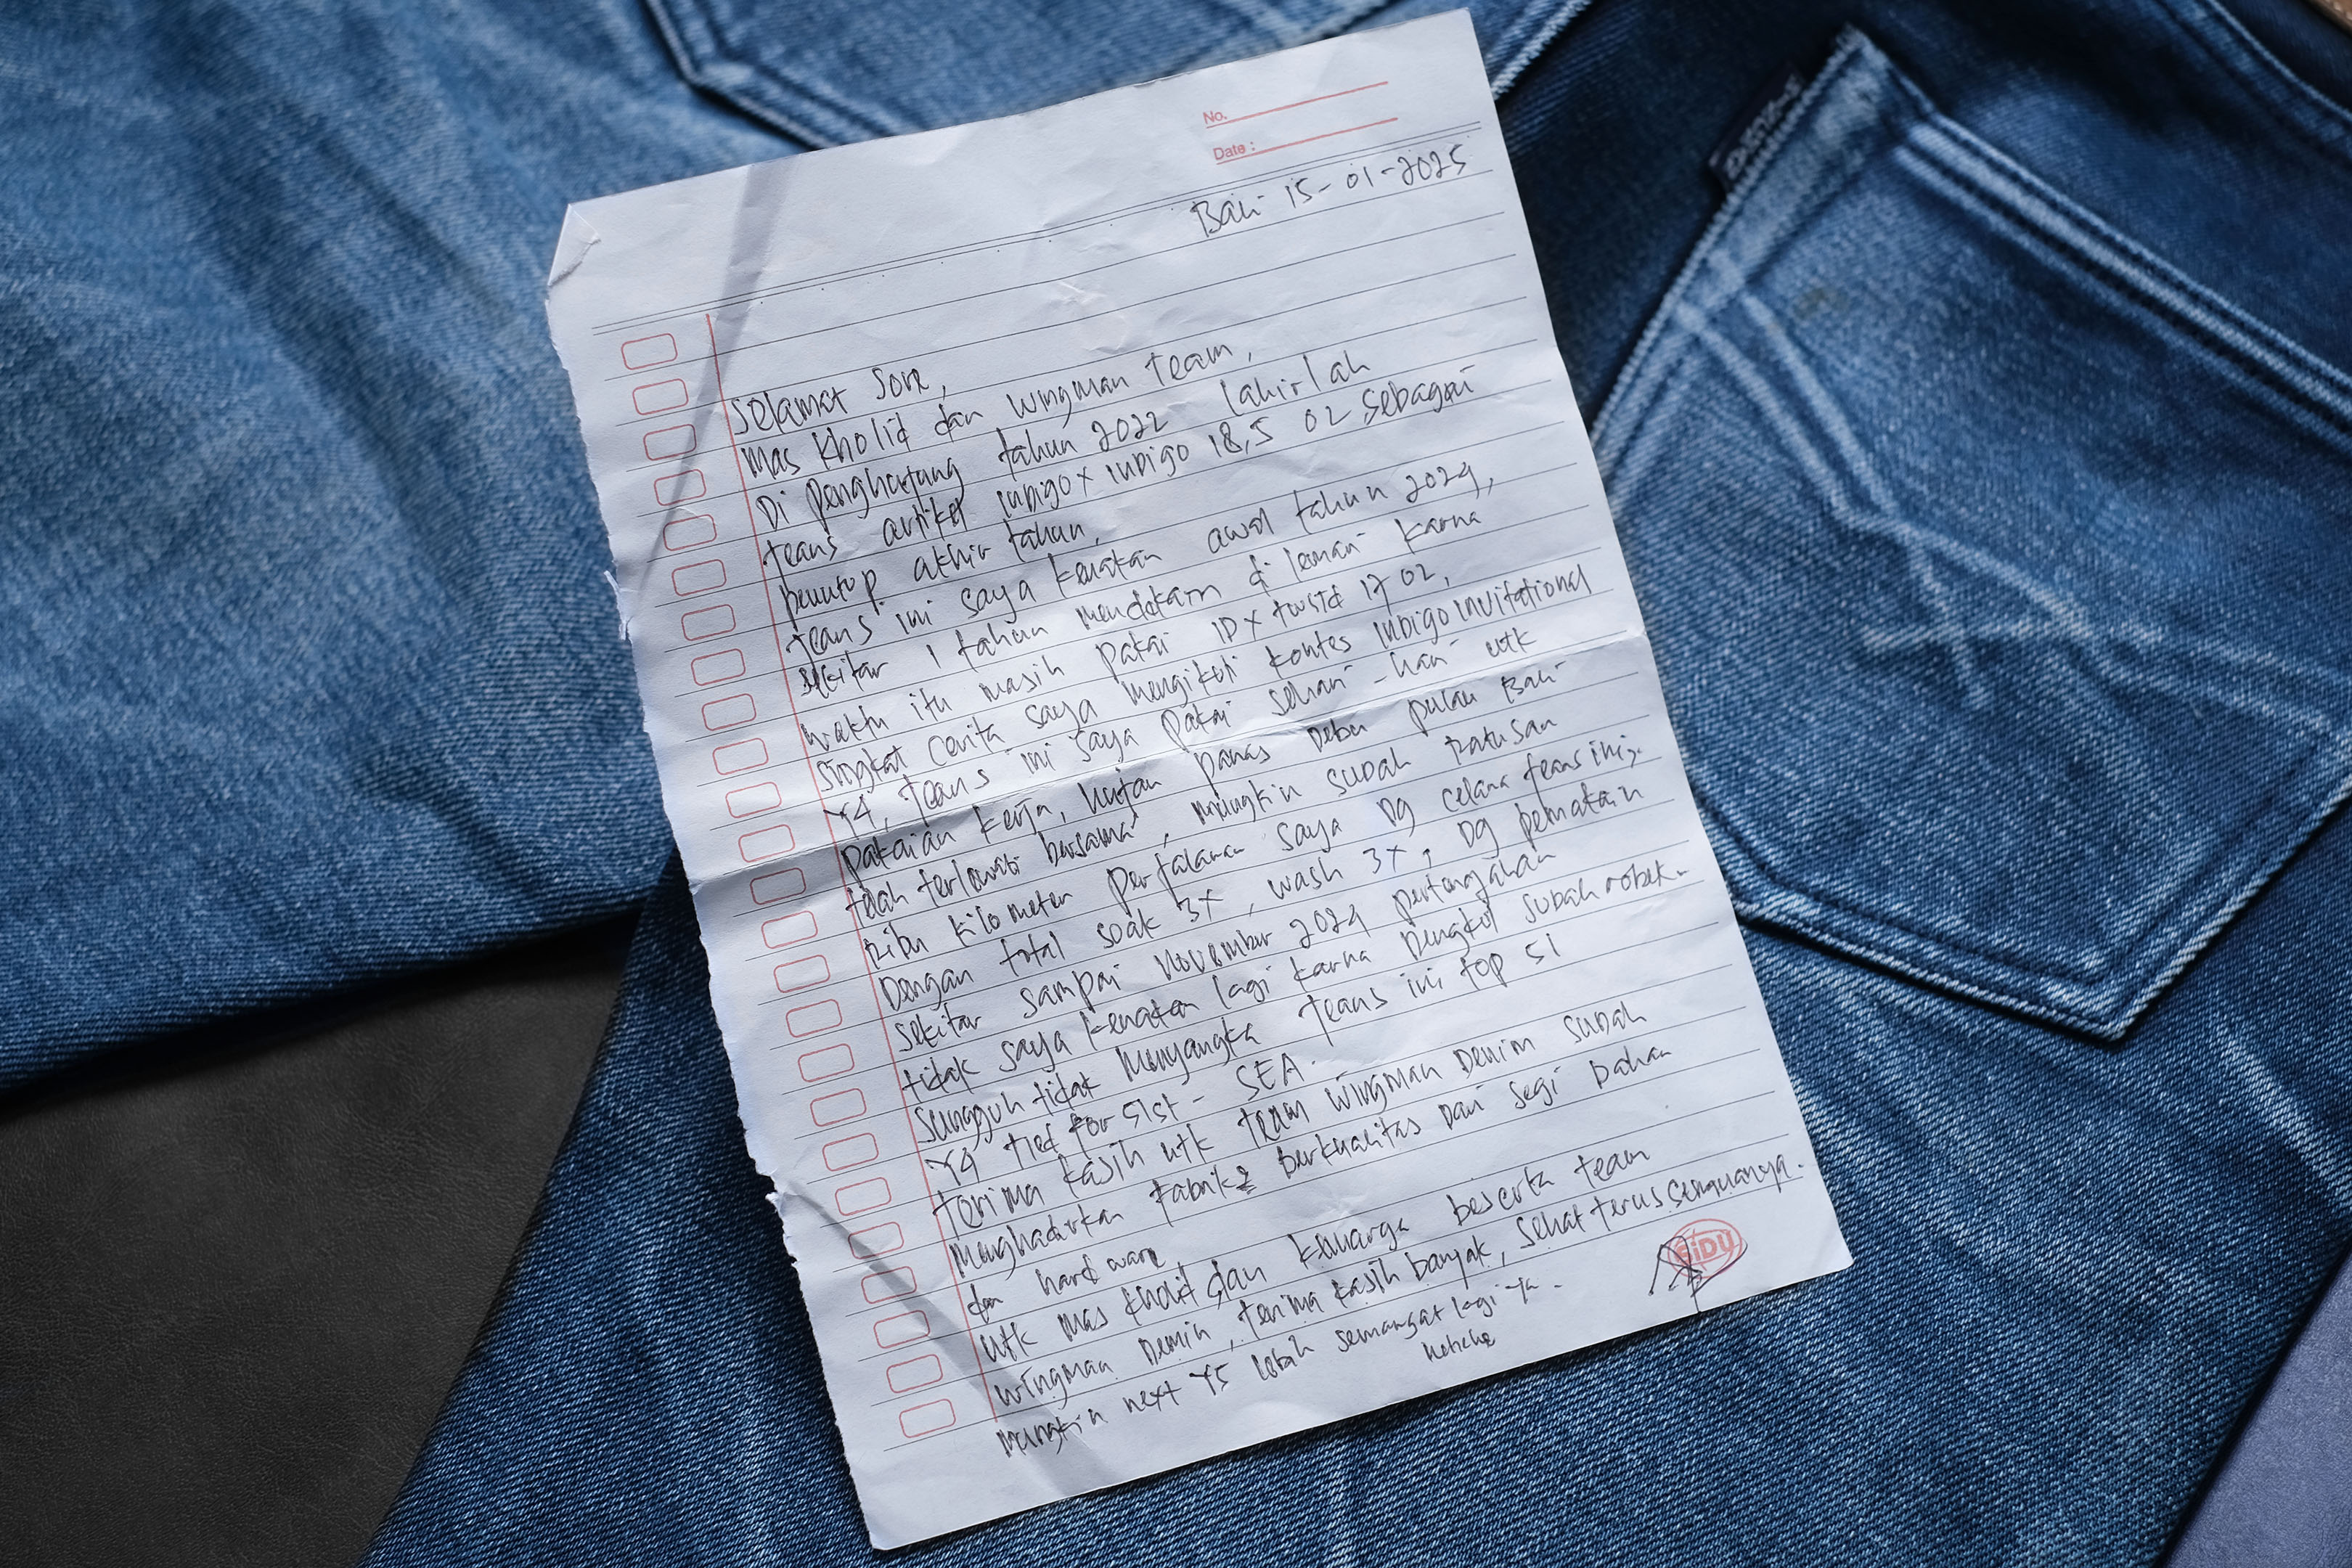 No.
Date :
Bali 15-01-2025
Selamat Sore,
Mas Kholid dan Wingman Team,
Di penghujung tahun 2022 lahirlah
jeans artikel INDIGO x INDIGO 18,5 OZ sebagai
penutup akhir tahun,
jeans ini saya kenakan awal tahun 2024,
sekitar 1 tahun mendekam di lemari karna
waktu itu masih pakai ID x twstd 17 OZ,
singkat cerita saya mengikuti kontes INDIGO INVITATIONAL
Y4, jeans ini saya pakai sehari-hari utk
pakaian kerja, hujan panas Debu pulau Bali
telah terlewati bersama, mungkin sudah Ratusan
Ribu kilometer perjalanan saya Dg celana jeans ini,
Dengan total soak 3x, wash 3x, Dg pemakain
sekitar sampai November 2024 pertengahan
tidak saya kenakan lagi karna Dengkul sudah robek.
Sungguh tidak menyangka jeans ini top 51
Y4 Tied for 51st - SEA.
Terima kasih utk Team Wingman Denim sudah
Menghadirkan fabrik2 berkualitas Dari segi bahan
dan hardware
utk mas kholid dan keluarga beserta team
wingman Denim, terima kasih banyak, sehat terus semuanya.
Mungkin next Y5 lebih semangat lagi ya.
hehehe
SiDU